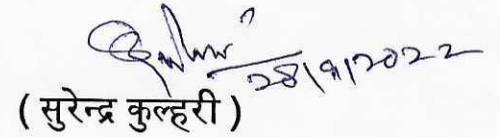 28/9/2022
( सुरेन्द्र कुल्हरी )